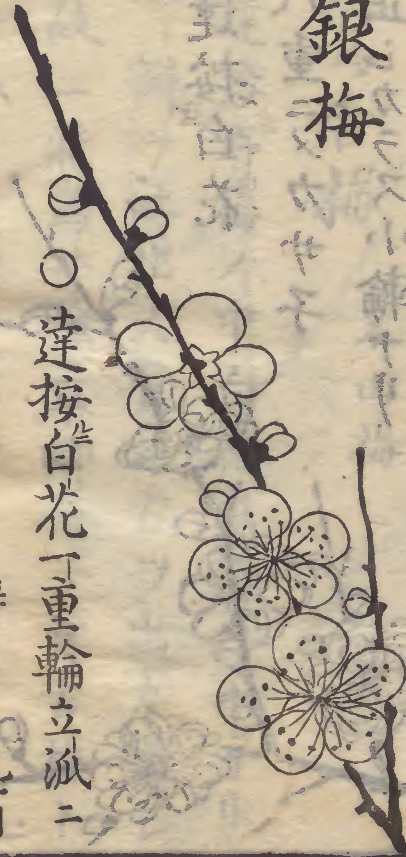 銀梅
○達按ニ白花一重輪立派ニ